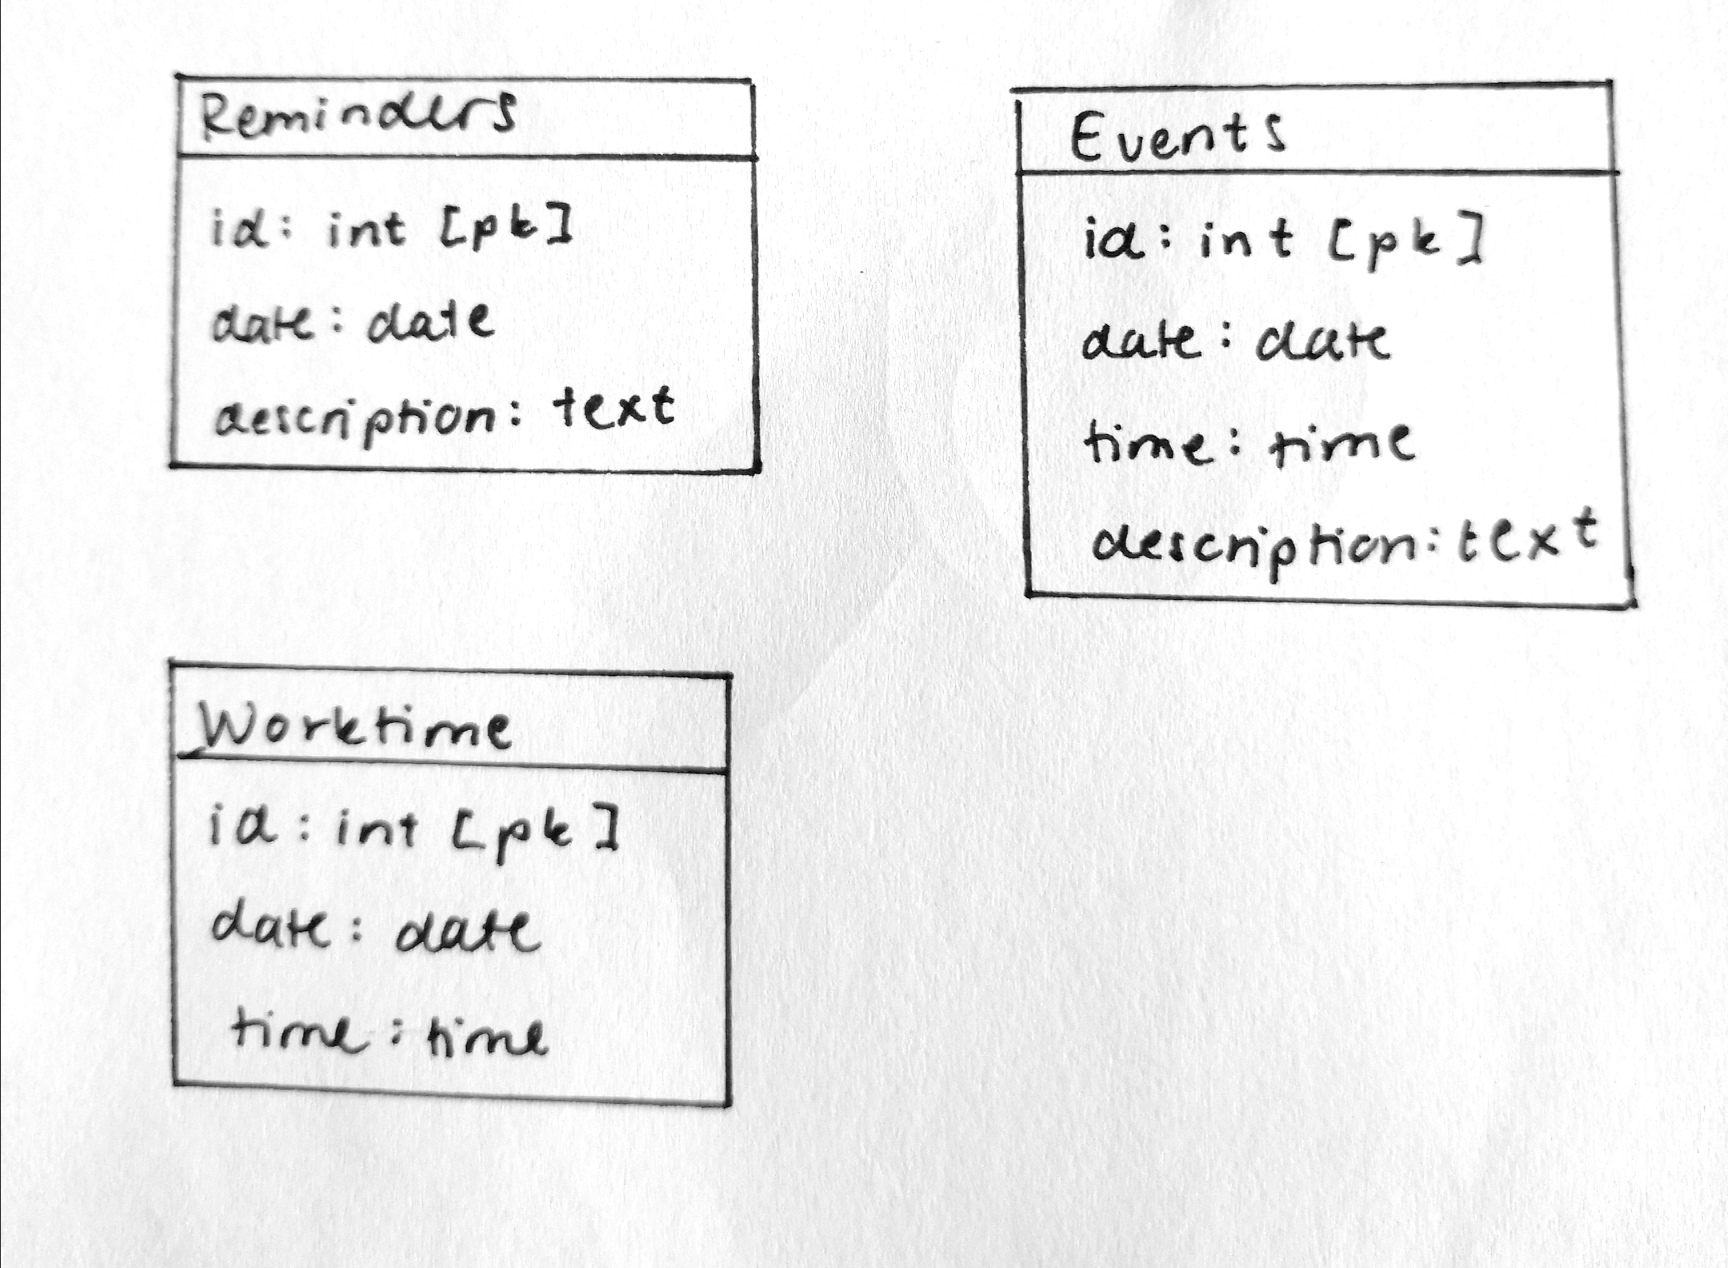 Reminders
id: int [pk]
date: date
description: text
Events
id: int [pk]
date: date
time: time
description: text
Worktime
id: int [pk]
date: date
time: time